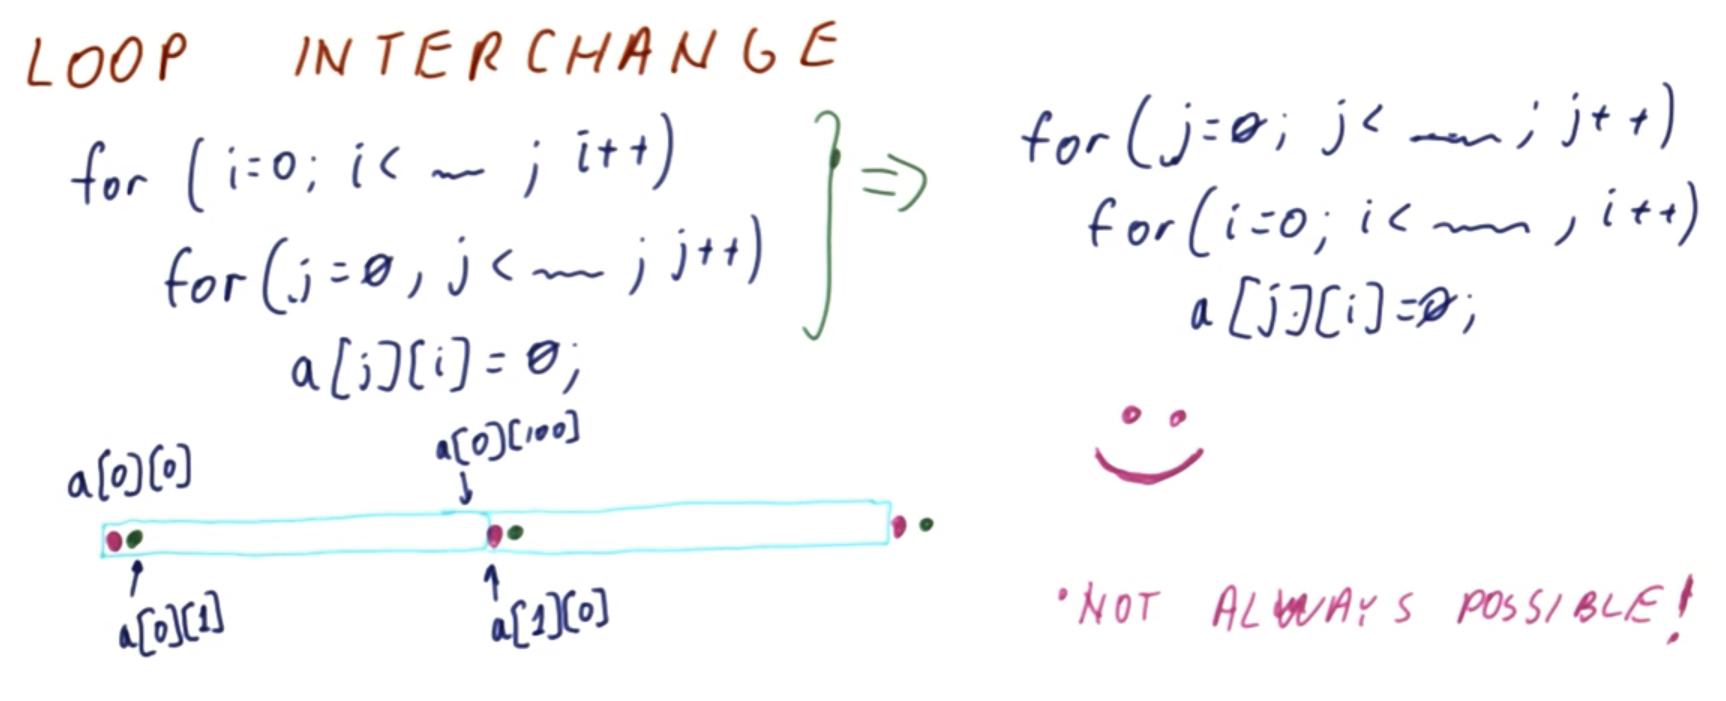 LOOP INTERCHANGE
for (i=0; i< __ ; i++)
for (j=0, j< __ ; j++)
a[j][i] = 0;
=>
for (j=0; j< __ ; j++)
for (i=0; i< __ , i++)
a[j][i]=0;
a[0][0]
a[0][100]
a[0][1]
a[1][0]
•NOT ALWAYS POSSIBLE!